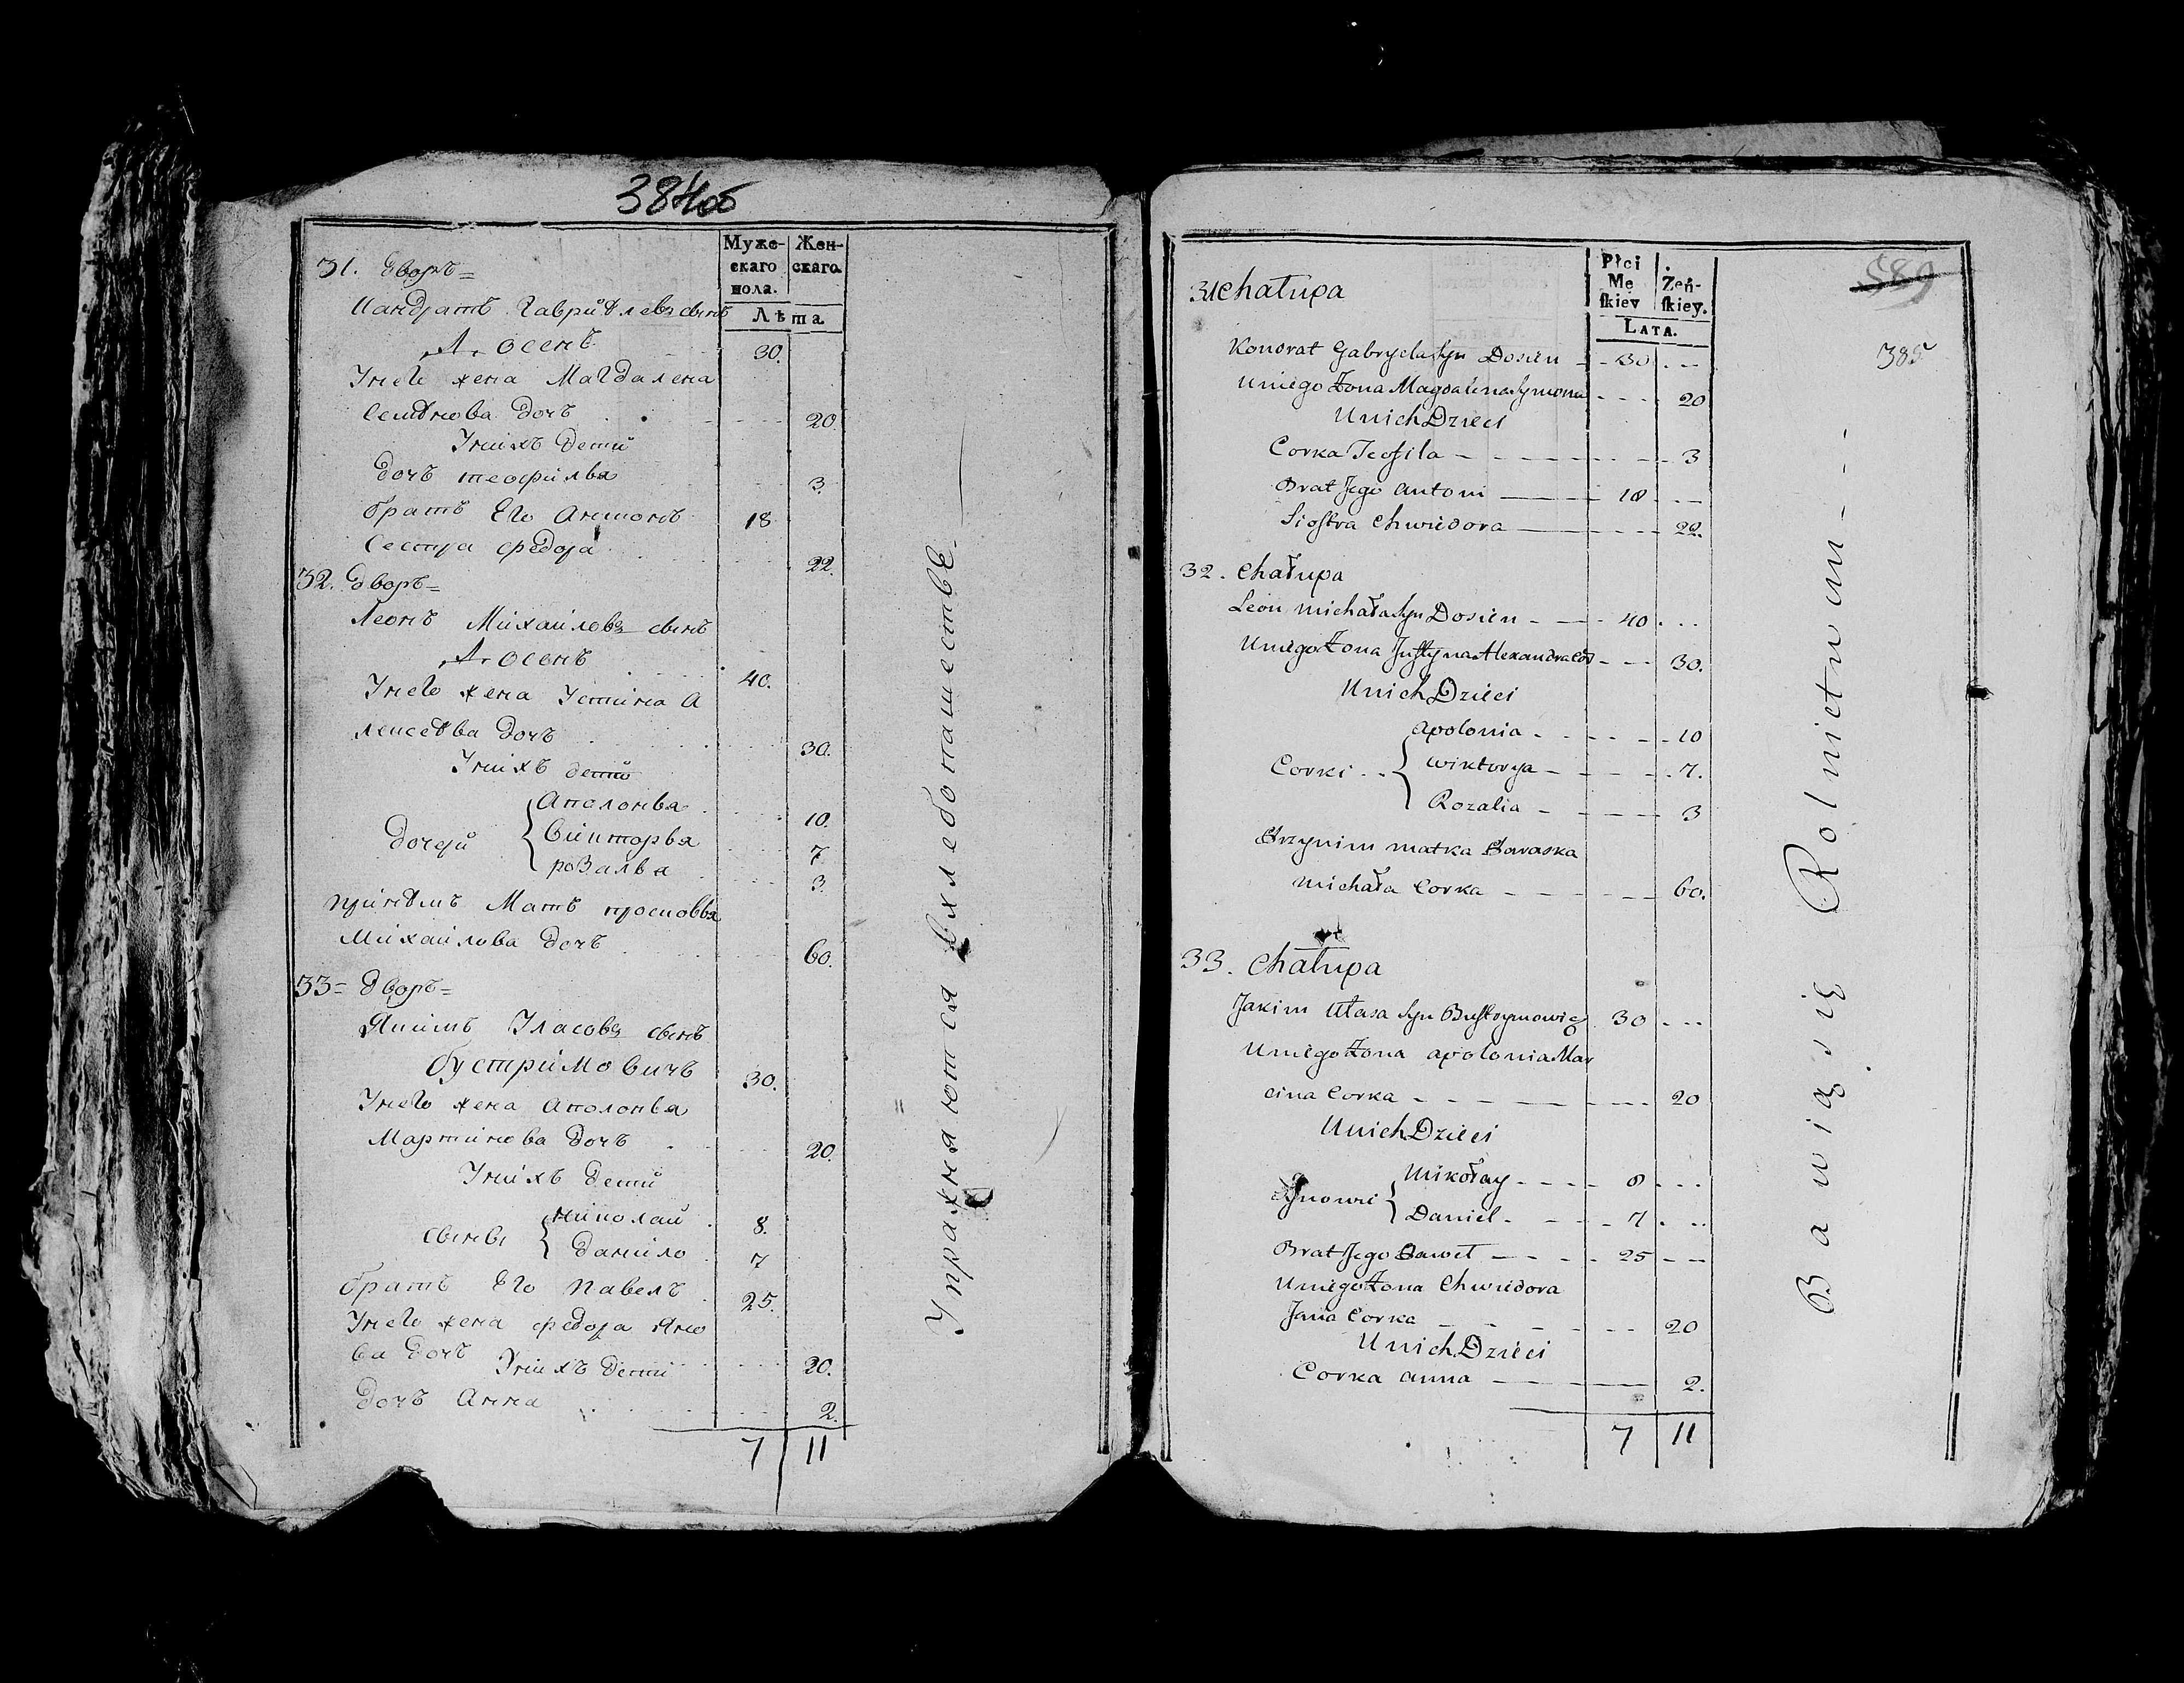 384об
Муже-
скаго
пола.
Жен-
скаго.
Лѣта
31. Дворъ=
Кандратъ Гавриилевъ сынъ
Досенъ 30.
Унего жена Магдалена
Семенова дочъ 20.
Унихъ дети
дочъ теофилья 3.
братъ Его Антонъ 18
Сестра федора 22.
32. Дворъ=
Леонъ Михаиловъ сынъ
Досенъ 40.
Унего жена Устина А
лексеева дочъ 30.
Унихъ дети
Аполонья 10.
дочери { Викторья 7
розалья 3.
принемъ Мать просковья
Михаилова дочъ 60.
33= дворъ=
Якимъ Уласовъ сынъ
бустримовичъ 30.
Унего жена Аполонья
Мартинова дочъ 20.
Унихъ дети
николай 8.
сыны { данило 7
братъ Его павелъ 25.
Унего жена федора Яно
ва дочъ 20.
Унихъ дети
дочъ Анна 2.
7 11
Упражняются вхлебопашествѣ
589
385
Płci
Mę
skiey
Żeń-
skiey.
LATA.
31 Chałupa
Kondrat Gabryela syn Dosien 30
Uniego Żona Magdalena Symona 20
Unich Dzieci
Corka Teofila 3
Brat Jego Antoni 18
Siostra Chwiedora 22.
32. Chałupa
Leon Michała syn Dosien 40
Uniego Żona Justyna Alexandra Cor 30.
Unich Dzieci
Apolonia 10
Corki { Wiktorya 7.
Rozalia 3
Przynim matka Paraska
Michała Corka 60.
33. Chałupa
Jakim Ułasa syn Bustrymowicz 30
Uniego Żona Apolonia Mar
cina Corka 20
Unich Dzieci
Mikołay 8
Synowie { Daniel 7
Brat Jego Paweł 25
Uniego Żona Chwiedora
Jana Corka 20
Unich Dzieci
Corka Anna 2.
7 11
Bawią się Rolnictwem